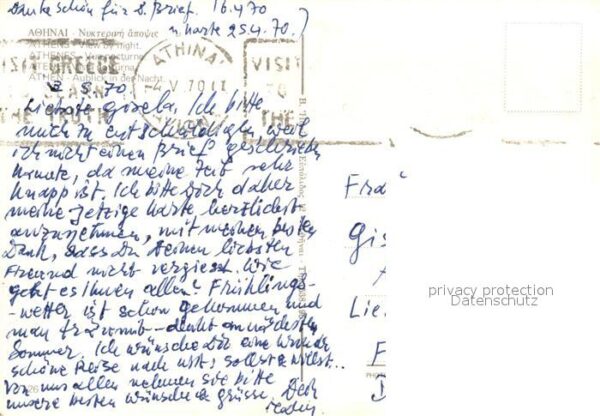 Danke schön für D. Brief. 16.4.70
u Karte 25.4.70.)
ΑΘΗΝΑΙ - Νυκτερινή άποψις
ATHENS - View by night.
ATHENES - Vue nocturne
ATHEN - Aublick in der Nacht.
ATHINAI
4 V 70
VISIT GREECE
VISIT
THE TRUTH
TO
THE
3 5.70.
Liebste Gisela. Ich bitte
mich zu entschuldigen, weil
ich nicht einen Brief geschrieben
konnte, da meine Zeit sehr
knapp ist. Ich bitte Dich daher
meine jetzige Karte herzlichst
anzunehmen, mit meinen besten
Dank, dass Du Deinen liebsten
Freund nicht vergisst. Wie
geht es Ihnen allen? Frühlings-
-wetter ist schon gekommen und
man denkt an nächsten
Sommer. Ich wünsche Dir eine
schöne Reise nach
Von uns allen nehmen sie bitte
unsere besten Wünsche & Grüsse. Dein
Fra
Gis
Lie
F
D
privacy protection
Datenschutz